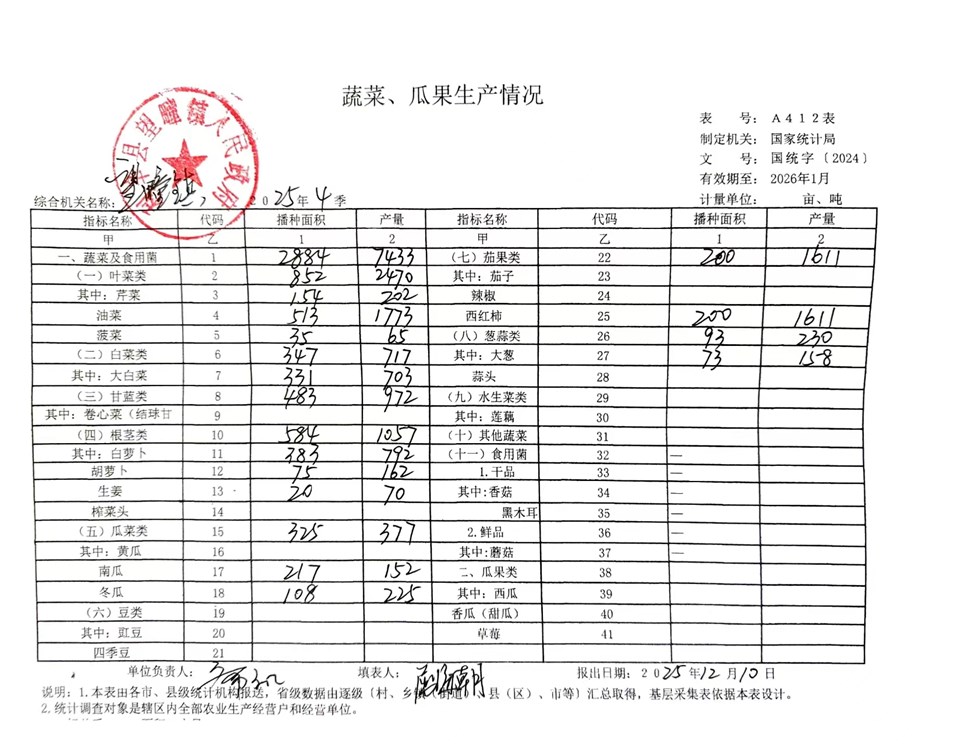 蔬菜、瓜果生产情况
表 号： A412表
制定机关： 国家统计局
文 号： 国统字〔2024〕
有效期至： 2026年1月
计量单位： 亩、吨
县望疃镇人民政府
综合机关名称： 望疃镇 2025年 4 季
指标名称 代码 播种面积 产量 指标名称 代码 播种面积 产量
甲 乙 1 2 甲 乙 1 2
一、蔬菜及食用菌 1 2884 7433 （七）茄果类 22 200 1611
（一）叶菜类 2 852 2470 其中：茄子 23
其中：芹菜 3 154 202 辣椒 24
油菜 4 513 1773 西红柿 25 200 1611
菠菜 5 35 65 （八）葱蒜类 26 93 230
（二）白菜类 6 347 717 其中：大葱 27 73 158
其中：大白菜 7 331 703 蒜头 28
（三）甘蓝类 8 483 972 （九）水生菜类 29
其中：卷心菜（结球甘 9 其中：莲藕 30
（四）根茎类 10 584 1057 （十）其他蔬菜 31
其中：白萝卜 11 383 792 （十一）食用菌 32 —
胡萝卜 12 75 162 1.干品 33 —
生姜 13 20 70 其中:香菇 34 —
榨菜头 14 黑木耳 35 —
（五）瓜菜类 15 325 377 2.鲜品 36 —
其中：黄瓜 16 其中:蘑菇 37 —
南瓜 17 217 152 二、瓜果类 38
冬瓜 18 108 225 其中：西瓜 39
（六）豆类 19 香瓜（甜瓜） 40
其中：豇豆 20 草莓 41
四季豆 21
单位负责人： 填表人： 报出日期：2025年12月10日
说明：1.本表由各市、县级统计机构报送，省级数据由逐级〔村、乡镇（街道）、县（区）、市等〕汇总取得，基层采集表依据本表设计。
2.统计调查对象是辖区内全部农业生产经营户和经营单位。